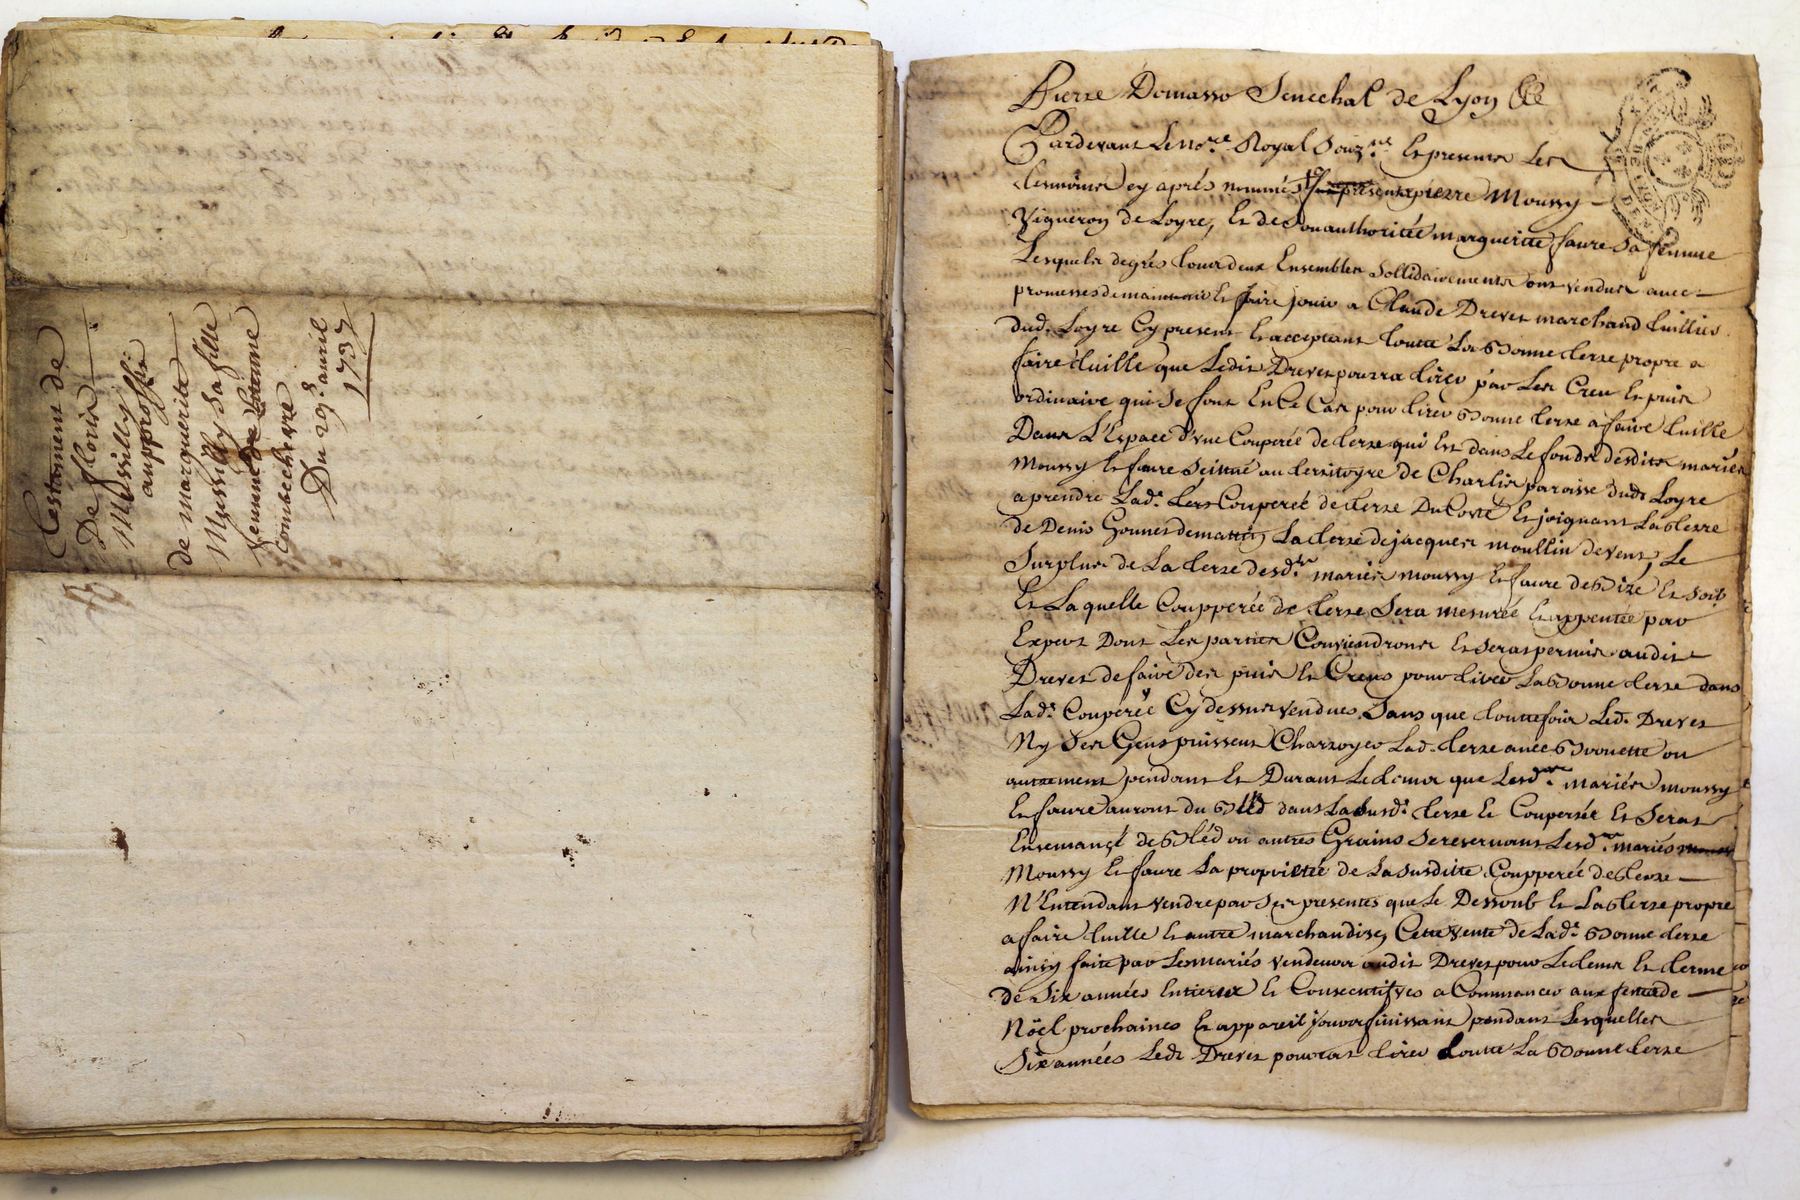 Testament de
De floris
Mussilly
au proffit
de marguerite
Mussilly sa fille
femme de Estienne
Combechevre
Du 29e auril
1737
Pierre Domasso Senechal de Lyon
Pardevant Le nore Royal Souzne Et presents Les
tesmoins cy aprés nommés pierre Moussy
Vigneron de Loyre, Et de Son authoritée marguerite faure Sa femme
Lesquels degrés tous deux Ensembles Sollidairements ont vendus avec
promesses de maintenir Et faire jouir a Claude Drevet marchand tuillier
dud. Loyre Cy present Et acceptant toutte La bonne terre propre a
faire tuille que Ledit Drevet pourra tirer par Les Creu Et puis
ordinaire qui Se font En Ce Cas pour tirer bonne terre a faire tuille
Dans L'Espace d'vne Couperée de terre qui Est dans Le fonds desdits mariés
Moussy Et faure Scittué au territoyre de Charlis paroisse dudt Loyre
a prendre Lade. Couperée de terre Du Costé Et joignant La terre
de Denis Gonnet de matin, La terre de jacques moullin de vent, Le
Surplus de La terre desds mariés moussy Et faure de bize Et Soir
Et Laquelle Coupperée de terre Sera mesurée Et appentée par
Expert Dont Les parties Conviendront Et Serat permis audit
Drevet de faire des puis Et Creus pour tirer La bonne terre dans
Lade Couperée Cy dessus vendues. Sans que touttefois Led. Drevet
Ny Ses Gens puissent Charroyer Lad. terre avec brouette ou
autrement pendant Et Durant Le temps que Lesds mariés moussy
Et faure auront du bléd dans La susde terre Et Couperée Et Serat
Ensemancé de bléd ou autres Grains Se reservant Lesds mariés
Moussy Et faure La proprietée de La Susditte Coupperée de terre
N'Entendant vendre par Ses presentes que Le Dessoub Et La terre propre
a faire tuille Et autre marchandise, Cette vente de Lade bonne terre
ainsy faite par Les mariés vendeurs audit Drevet pour Le tems Et terme
de Six années Entieres Et Consecutifves a Commancer aux feste de
Nöel prochaines Et a pareil jour finissant pendant Lesquelles
Six années Ledt Drevet pourrat tirer toutte La bonne terre